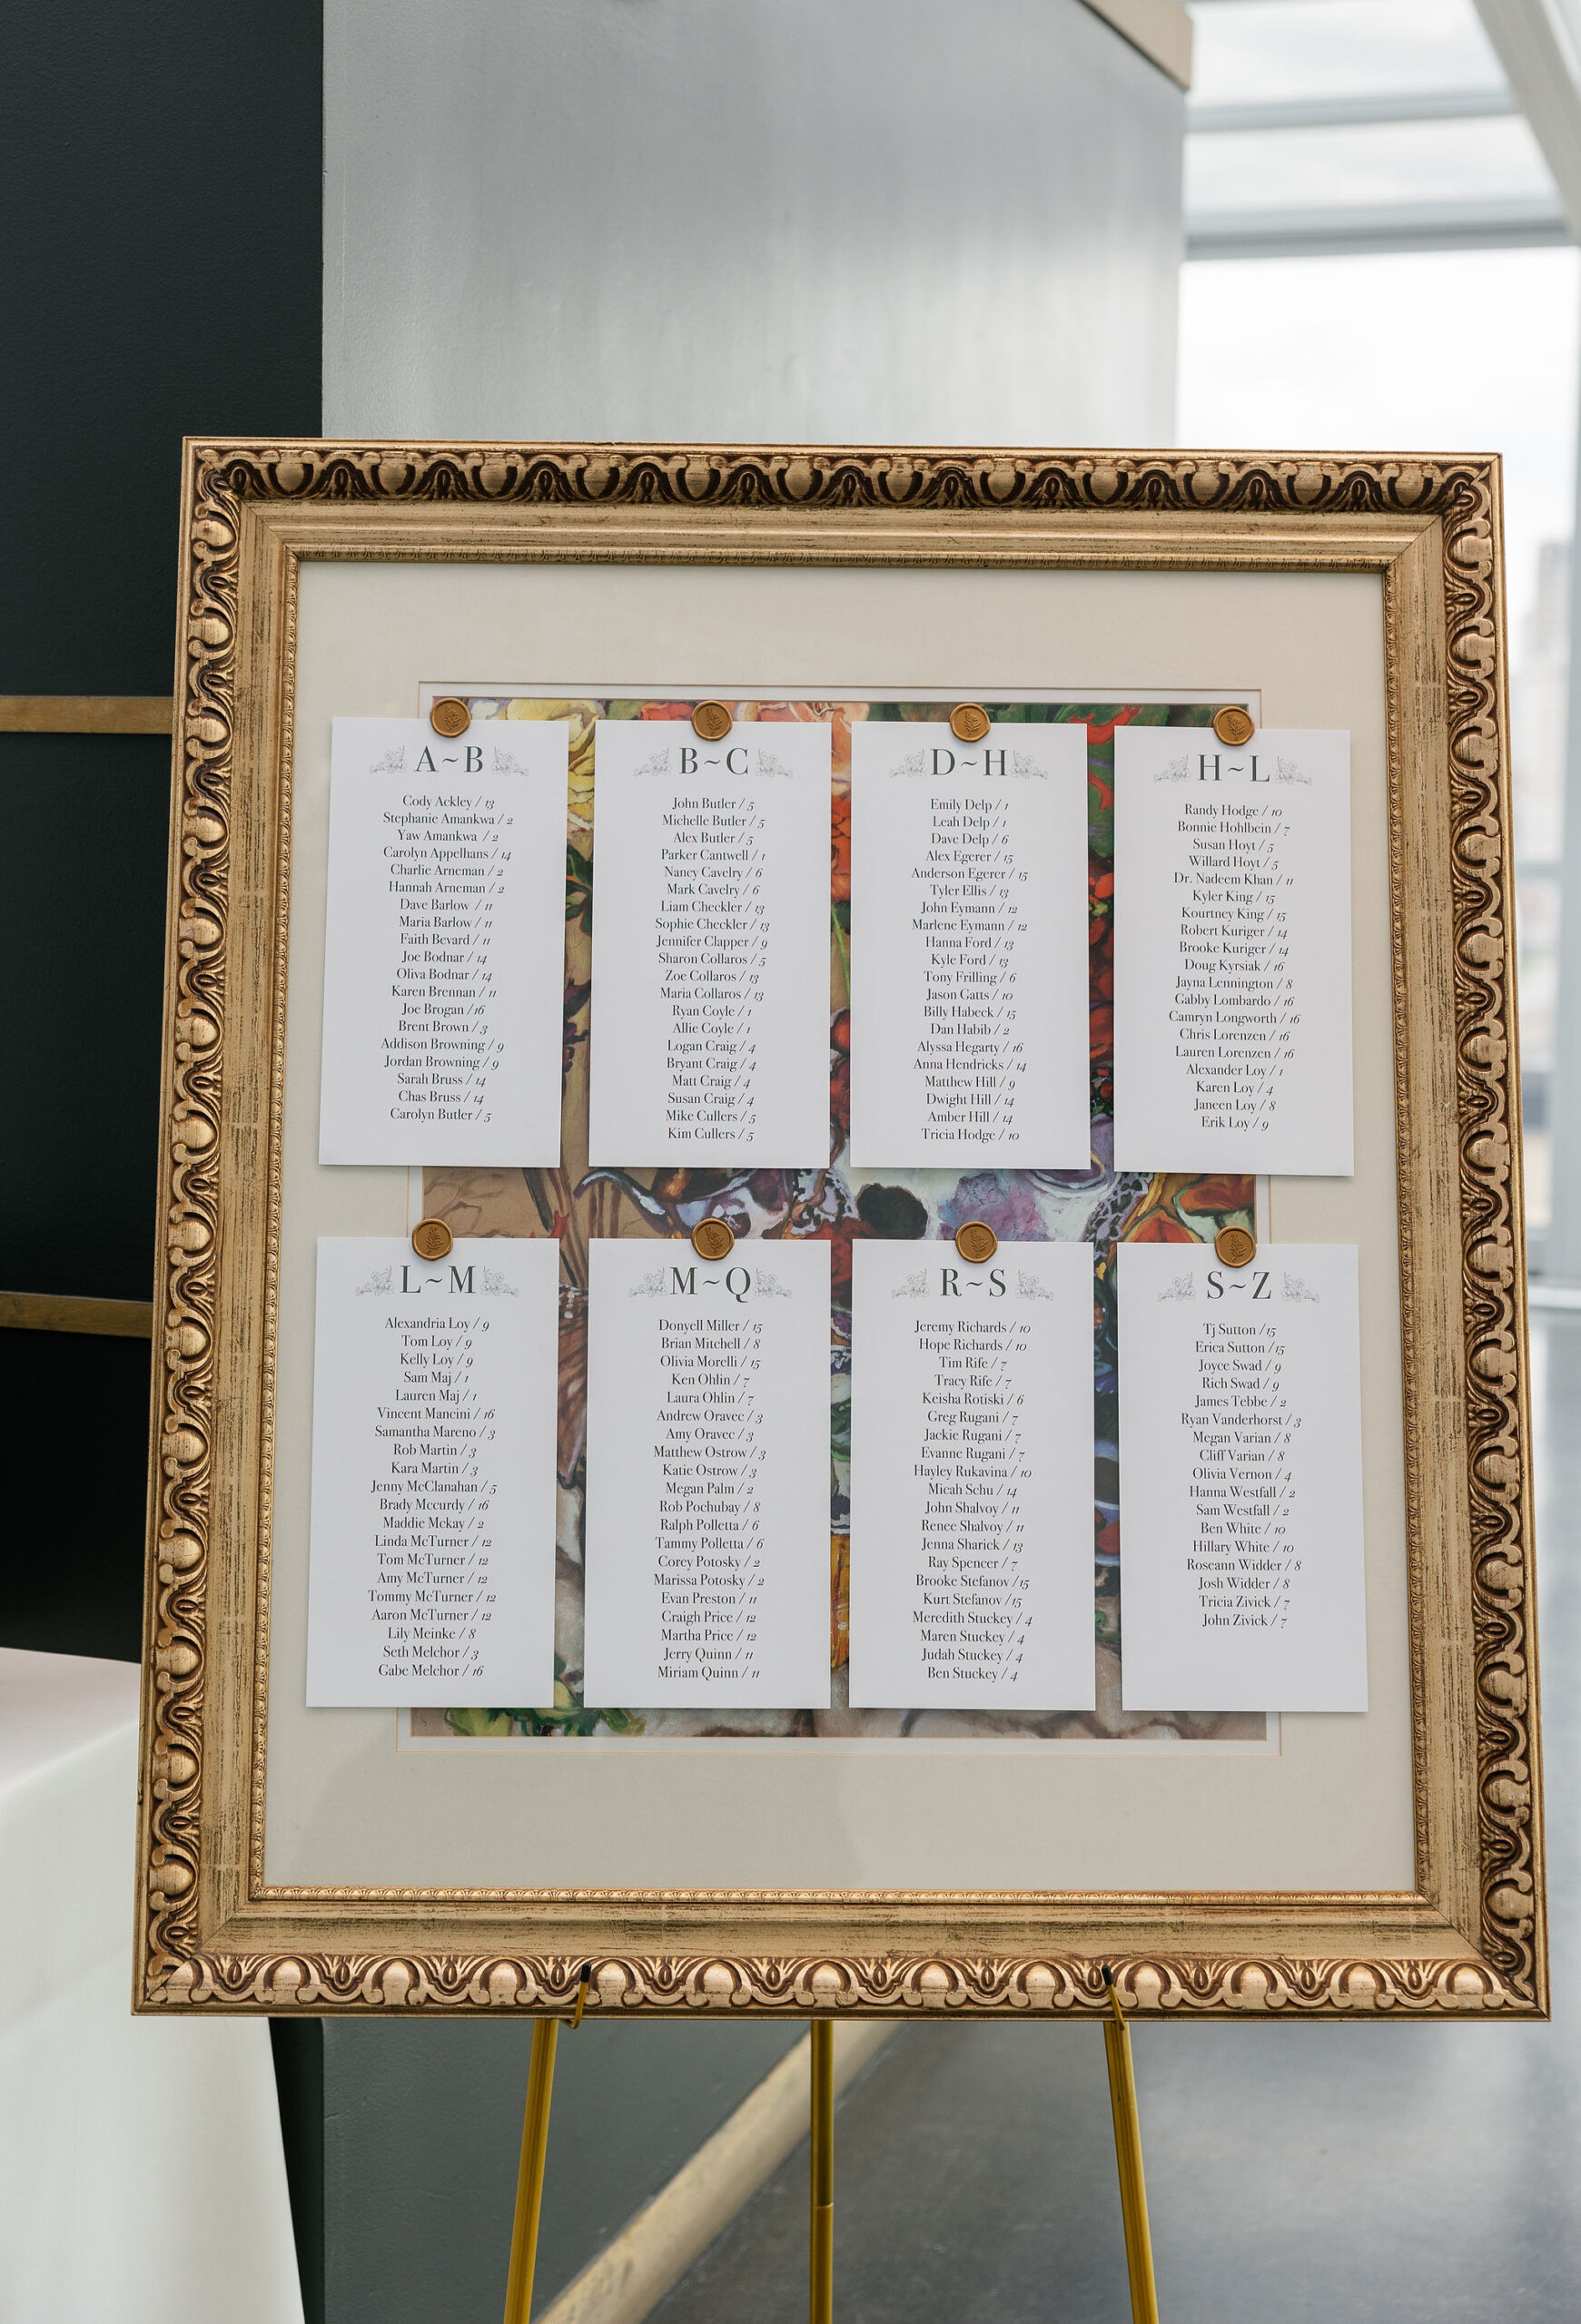 A~B
Cody Ackley / 13
Stephanie Amankwa / 2
Yaw Amankwa / 2
Carolyn Appelhans / 14
Charlie Arneman / 2
Hannah Arneman / 2
Dave Barlow / 11
Maria Barlow / 11
Faith Bevard / 11
Joe Bodnar / 14
Oliva Bodnar / 14
Karen Brennan / 11
Joe Brogan /16
Brent Brown / 3
Addison Browning / 9
Jordan Browning / 9
Sarah Bruss / 14
Chas Bruss / 14
Carolyn Butler / 5
B~C
John Butler / 5
Michelle Butler / 5
Alex Butler / 5
Parker Cantwell / 1
Nancy Cavelry / 6
Mark Cavelry / 6
Liam Checkler / 13
Sophie Checkler / 13
Jennifer Clapper / 9
Sharon Collaros / 5
Zoe Collaros / 13
Maria Collaros / 13
Ryan Coyle / 1
Allie Coyle / 1
Logan Craig / 4
Bryant Craig / 4
Matt Craig / 4
Susan Craig / 4
Mike Cullers / 5
Kim Cullers / 5
D~H
Emily Delp / 1
Leah Delp / 1
Dave Delp / 6
Alex Egerer / 15
Anderson Egerer / 15
Tyler Ellis / 13
John Eymann / 12
Marlene Eymann / 12
Hanna Ford / 13
Kyle Ford / 13
Tony Frilling / 6
Jason Gatts / 10
Billy Habeck / 15
Dan Habib / 2
Alyssa Hegarty / 16
Anna Hendricks / 14
Matthew Hill / 9
Dwight Hill / 14
Amber Hill / 14
Tricia Hodge / 10
H~L
Randy Hodge / 10
Bonnie Hohlbein / 7
Susan Hoyt / 5
Willard Hoyt / 5
Dr. Nadeem Khan / 11
Kyler King / 15
Kourtney King / 15
Robert Kuriger / 14
Brooke Kuriger / 14
Doug Kyrsiak / 16
Jayna Lennington / 8
Gabby Lombardo / 16
Camryn Longworth / 16
Chris Lorenzen / 16
Lauren Lorenzen / 16
Alexander Loy / 1
Karen Loy / 4
Janeen Loy / 8
Erik Loy / 9
L~M
Alexandria Loy / 9
Tom Loy / 9
Kelly Loy / 9
Sam Maj / 1
Lauren Maj / 1
Vincent Mancini / 16
Samantha Mareno / 3
Rob Martin / 3
Kara Martin / 3
Jenny McClanahan / 5
Brady Mccurdy / 16
Maddie Mckay / 2
Linda McTurner / 12
Tom McTurner / 12
Amy McTurner / 12
Tommy McTurner / 12
Aaron McTurner / 12
Lily Meinke / 8
Seth Melchor / 3
Gabe Melchor / 16
M~Q
Donyell Miller / 15
Brian Mitchell / 8
Olivia Morelli / 15
Ken Ohlin / 7
Laura Ohlin / 7
Andrew Oravec / 3
Amy Oravec / 3
Matthew Ostrow / 3
Katie Ostrow / 3
Megan Palm / 2
Rob Pochubay / 8
Ralph Polletta / 6
Tammy Polletta / 6
Corey Potosky / 2
Marissa Potosky / 2
Evan Preston / 11
Craigh Price / 12
Martha Price / 12
Jerry Quinn / 11
Miriam Quinn / 11
R~S
Jeremy Richards / 10
Hope Richards / 10
Tim Rife / 7
Tracy Rife / 7
Keisha Rotiski / 6
Greg Rugani / 7
Jackie Rugani / 7
Evanne Rugani / 7
Hayley Rukavina / 10
Micah Schu / 14
John Shalvoy / 11
Renee Shalvoy / 11
Jenna Sharick / 13
Ray Spencer / 7
Brooke Stefanov /15
Kurt Stefanov /15
Meredith Stuckey / 4
Maren Stuckey / 4
Judah Stuckey / 4
Ben Stuckey / 4
S~Z
Tj Sutton /15
Erica Sutton /15
Joyce Swad / 9
Rich Swad / 9
James Tebbe / 2
Ryan Vanderhorst / 3
Megan Varian / 8
Cliff Varian / 8
Olivia Vernon / 4
Hanna Westfall / 2
Sam Westfall / 2
Ben White / 10
Hillary White / 10
Roseann Widder / 8
Josh Widder / 8
Tricia Zivick / 7
John Zivick / 7